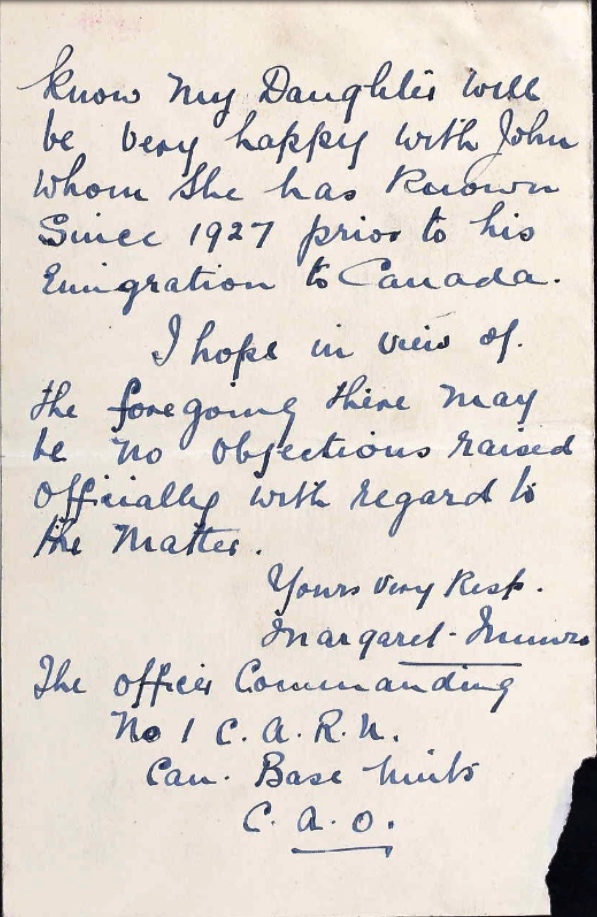 know my Daughter will
be very happy with John
whom she has known
Since 1927 prior to his
Emigration to Canada.
I hope in view of.
the foregoing there may
be no objections raised
officially with regard to
the matter.
Yours very Resp.
Margaret Munro
The officer Commanding
No 1 C. A. R. U.
Can. Base Units
C. A. O.